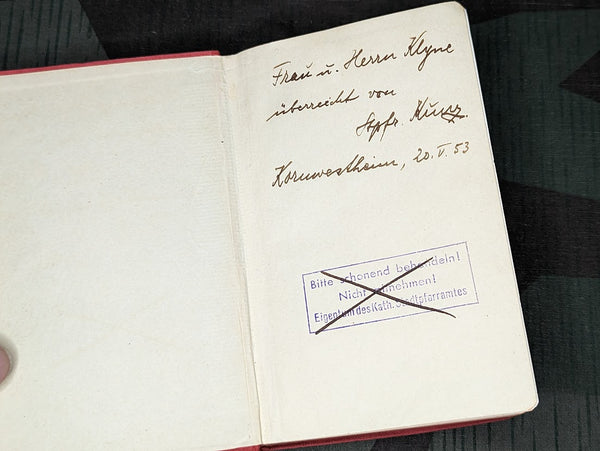 Frau u. Herrn Klyne
überreicht von
Stpfr. Kurz.
Kornwestheim, 20.V.53
Bitte schonend behandeln!
Nicht mitnehmen!
Eigentum des Kath. Stadtpfarramtes